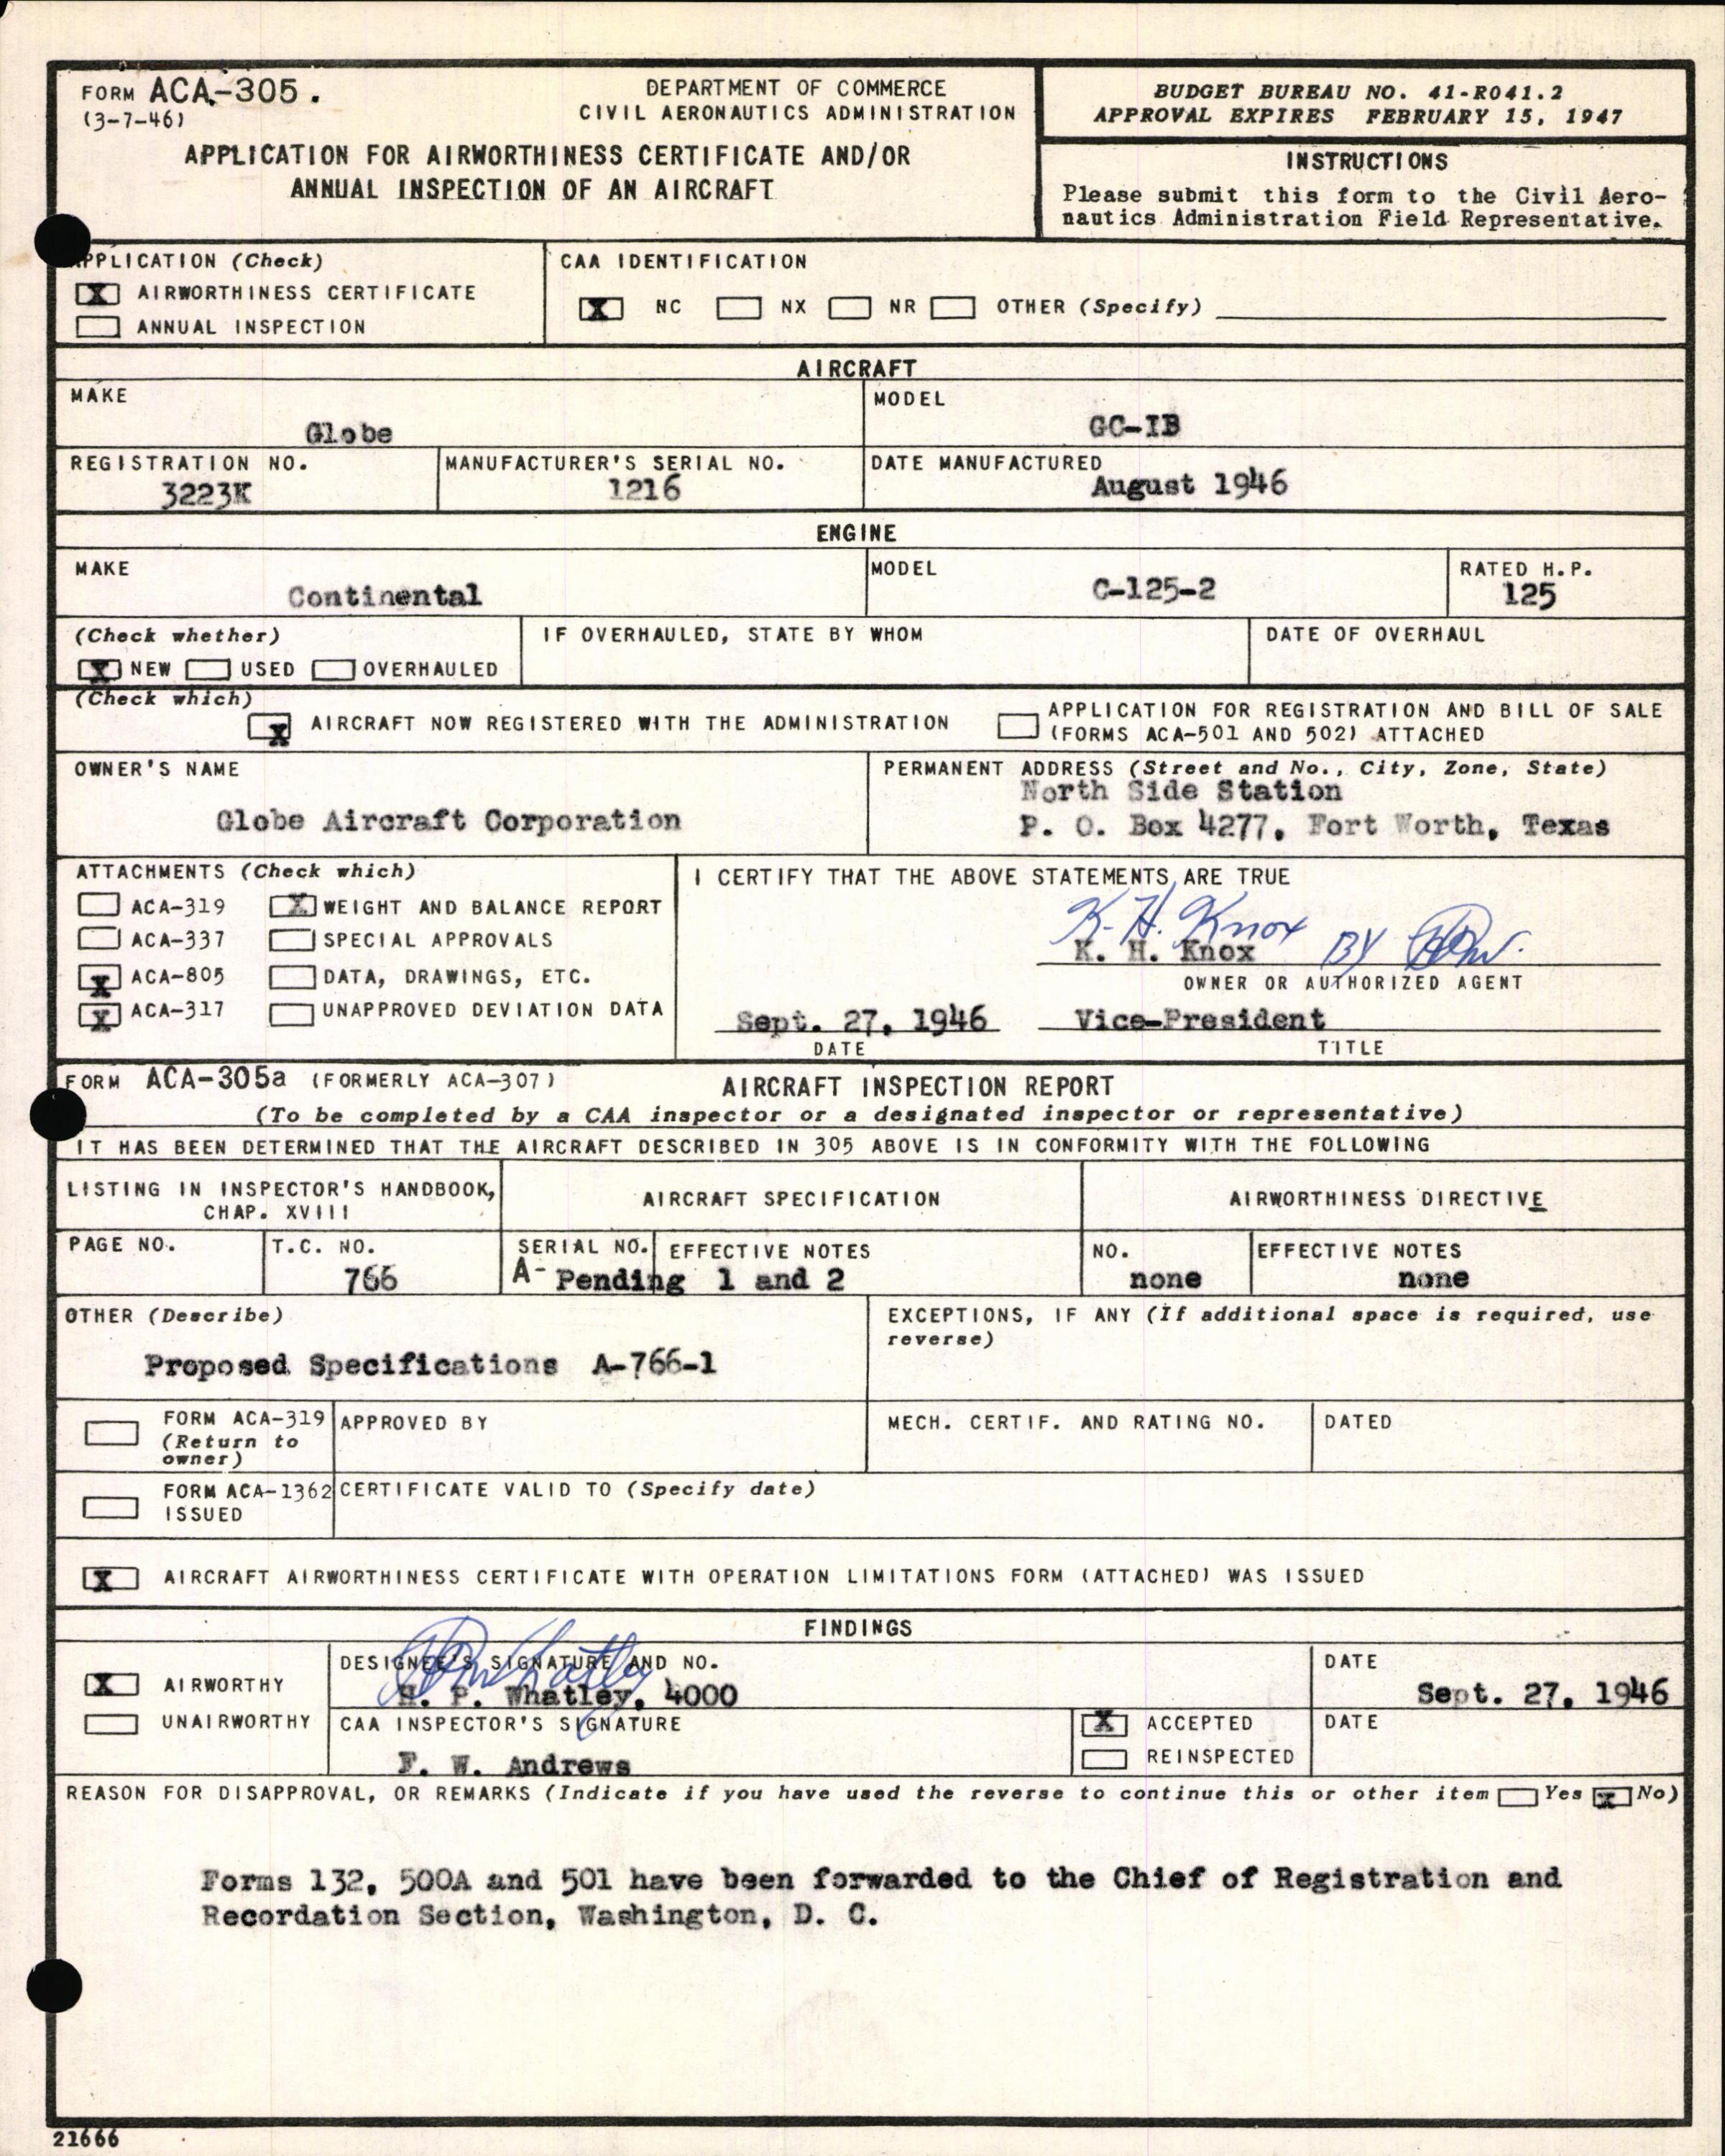 FORM ACA-305.
(3-7-46)
DEPARTMENT OF COMMERCE
CIVIL AERONAUTICS ADMINISTRATION
APPLICATION FOR AIRWORTHINESS CERTIFICATE AND/OR
ANNUAL INSPECTION OF AN AIRCRAFT
BUDGET BUREAU NO. 41-R041.2
APPROVAL EXPIRES FEBRUARY 15, 1947
INSTRUCTIONS
Please submit this form to the Civil Aero-
nautics Administration Field Representative.
APPLICATION (Check)
X AIRWORTHINESS CERTIFICATE
ANNUAL INSPECTION
CAA IDENTIFICATION
X NC NX NR OTHER (Specify)
AIRCRAFT
MAKE
Globe
MODEL
GC-1B
REGISTRATION NO.
3223K
MANUFACTURER'S SERIAL NO.
1216
DATE MANUFACTURED
August 1946
ENGINE
MAKE
Continental
MODEL
C-125-2
RATED H.P.
125
(Check whether)
X NEW USED OVERHAULED
IF OVERHAULED, STATE BY WHOM
DATE OF OVERHAUL
(Check which)
X AIRCRAFT NOW REGISTERED WITH THE ADMINISTRATION
APPLICATION FOR REGISTRATION AND BILL OF SALE
(FORMS ACA-501 AND 502) ATTACHED
OWNER'S NAME
Globe Aircraft Corporation
PERMANENT ADDRESS (Street and No., City, Zone, State)
North Side Station
P. O. Box 4277, Fort Worth, Texas
ATTACHMENTS (Check which)
ACA-319 X WEIGHT AND BALANCE REPORT
ACA-337 SPECIAL APPROVALS
X ACA-805 DATA, DRAWINGS, ETC.
X ACA-317 UNAPPROVED DEVIATION DATA
I CERTIFY THAT THE ABOVE STATEMENTS ARE TRUE
K. H. Knox BY
K. H. Knox
OWNER OR AUTHORIZED AGENT
Sept. 27, 1946 Vice-President
DATE TITLE
FORM ACA-305a (FORMERLY ACA-307)
AIRCRAFT INSPECTION REPORT
(To be completed by a CAA inspector or a designated inspector or representative)
IT HAS BEEN DETERMINED THAT THE AIRCRAFT DESCRIBED IN 305 ABOVE IS IN CONFORMITY WITH THE FOLLOWING
LISTING IN INSPECTOR'S HANDBOOK,
CHAP. XVIII
AIRCRAFT SPECIFICATION
AIRWORTHINESS DIRECTIVE
PAGE NO.
T.C. NO.
766
SERIAL NO.
A- Pending
EFFECTIVE NOTES
1 and 2
NO.
none
EFFECTIVE NOTES
none
OTHER (Describe)
Proposed Specifications A-766-1
EXCEPTIONS, IF ANY (If additional space is required, use
reverse)
FORM ACA-319
(Return to
owner)
APPROVED BY
MECH. CERTIF. AND RATING NO.
DATED
FORM ACA-1362
ISSUED
CERTIFICATE VALID TO (Specify date)
X AIRCRAFT AIRWORTHINESS CERTIFICATE WITH OPERATION LIMITATIONS FORM (ATTACHED) WAS ISSUED
FINDINGS
X AIRWORTHY
UNAIRWORTHY
DESIGNEE'S SIGNATURE AND NO.
H P Whatley
H. P. Whatley, 4000
DATE
Sept. 27, 1946
CAA INSPECTOR'S SIGNATURE
F. W. Andrews
X ACCEPTED
REINSPECTED
DATE
REASON FOR DISAPPROVAL, OR REMARKS (Indicate if you have used the reverse to continue this or other item Yes X No)
Forms 132, 500A and 501 have been forwarded to the Chief of Registration and
Recordation Section, Washington, D. C.
21666